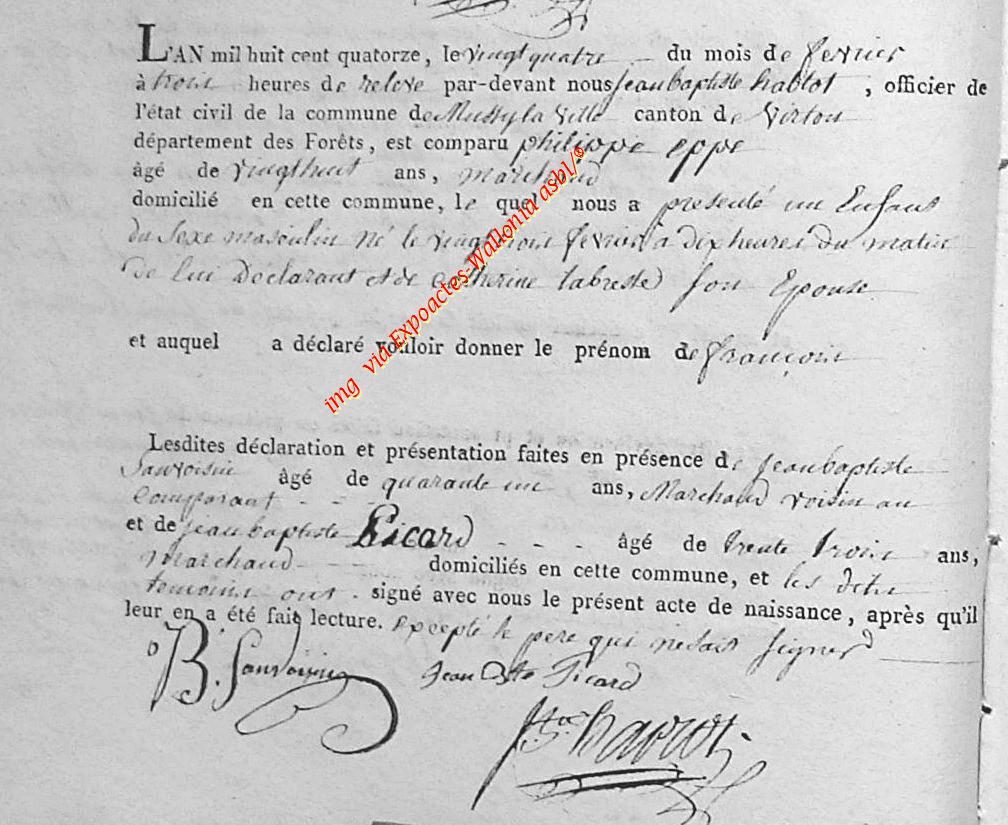 L'AN mil huit cent quatorze, le vingt quatre du mois de fevrier
à trois heures de releve par-devant nous jean baptiste habtot, officier de
l'état civil de la commune de Mussy la ville canton de Virton
département des Forêts, est comparu philippe eppe
âgé de vingt huit ans, marchand
domicilié en cette commune, le quel nous a presenté un Enfant
du Sexe masculin né le vingt trois fevrier a dix heures du matin
de lui Déclarant et de Catherine labresté son Epouse
et auquel a déclaré vouloir donner le prénom de françois
Lesdites déclaration et présentation faites en présence de jean baptiste
Sauvoisin âgé de quarante un ans, Marchand voisin au
comparant - - -
et de jean baptiste Picard - - - âgé de trente trois ans,
marchand - - domiciliés en cette commune, et les dits
temoins ont signé avec nous le présent acte de naissance, après qu'il
leur en a été fait lecture. Excepté le pere qui ne sait signer
B. Sauvoisin Jean Bte Picard
img via Expoactes-Wallonia asbl/©